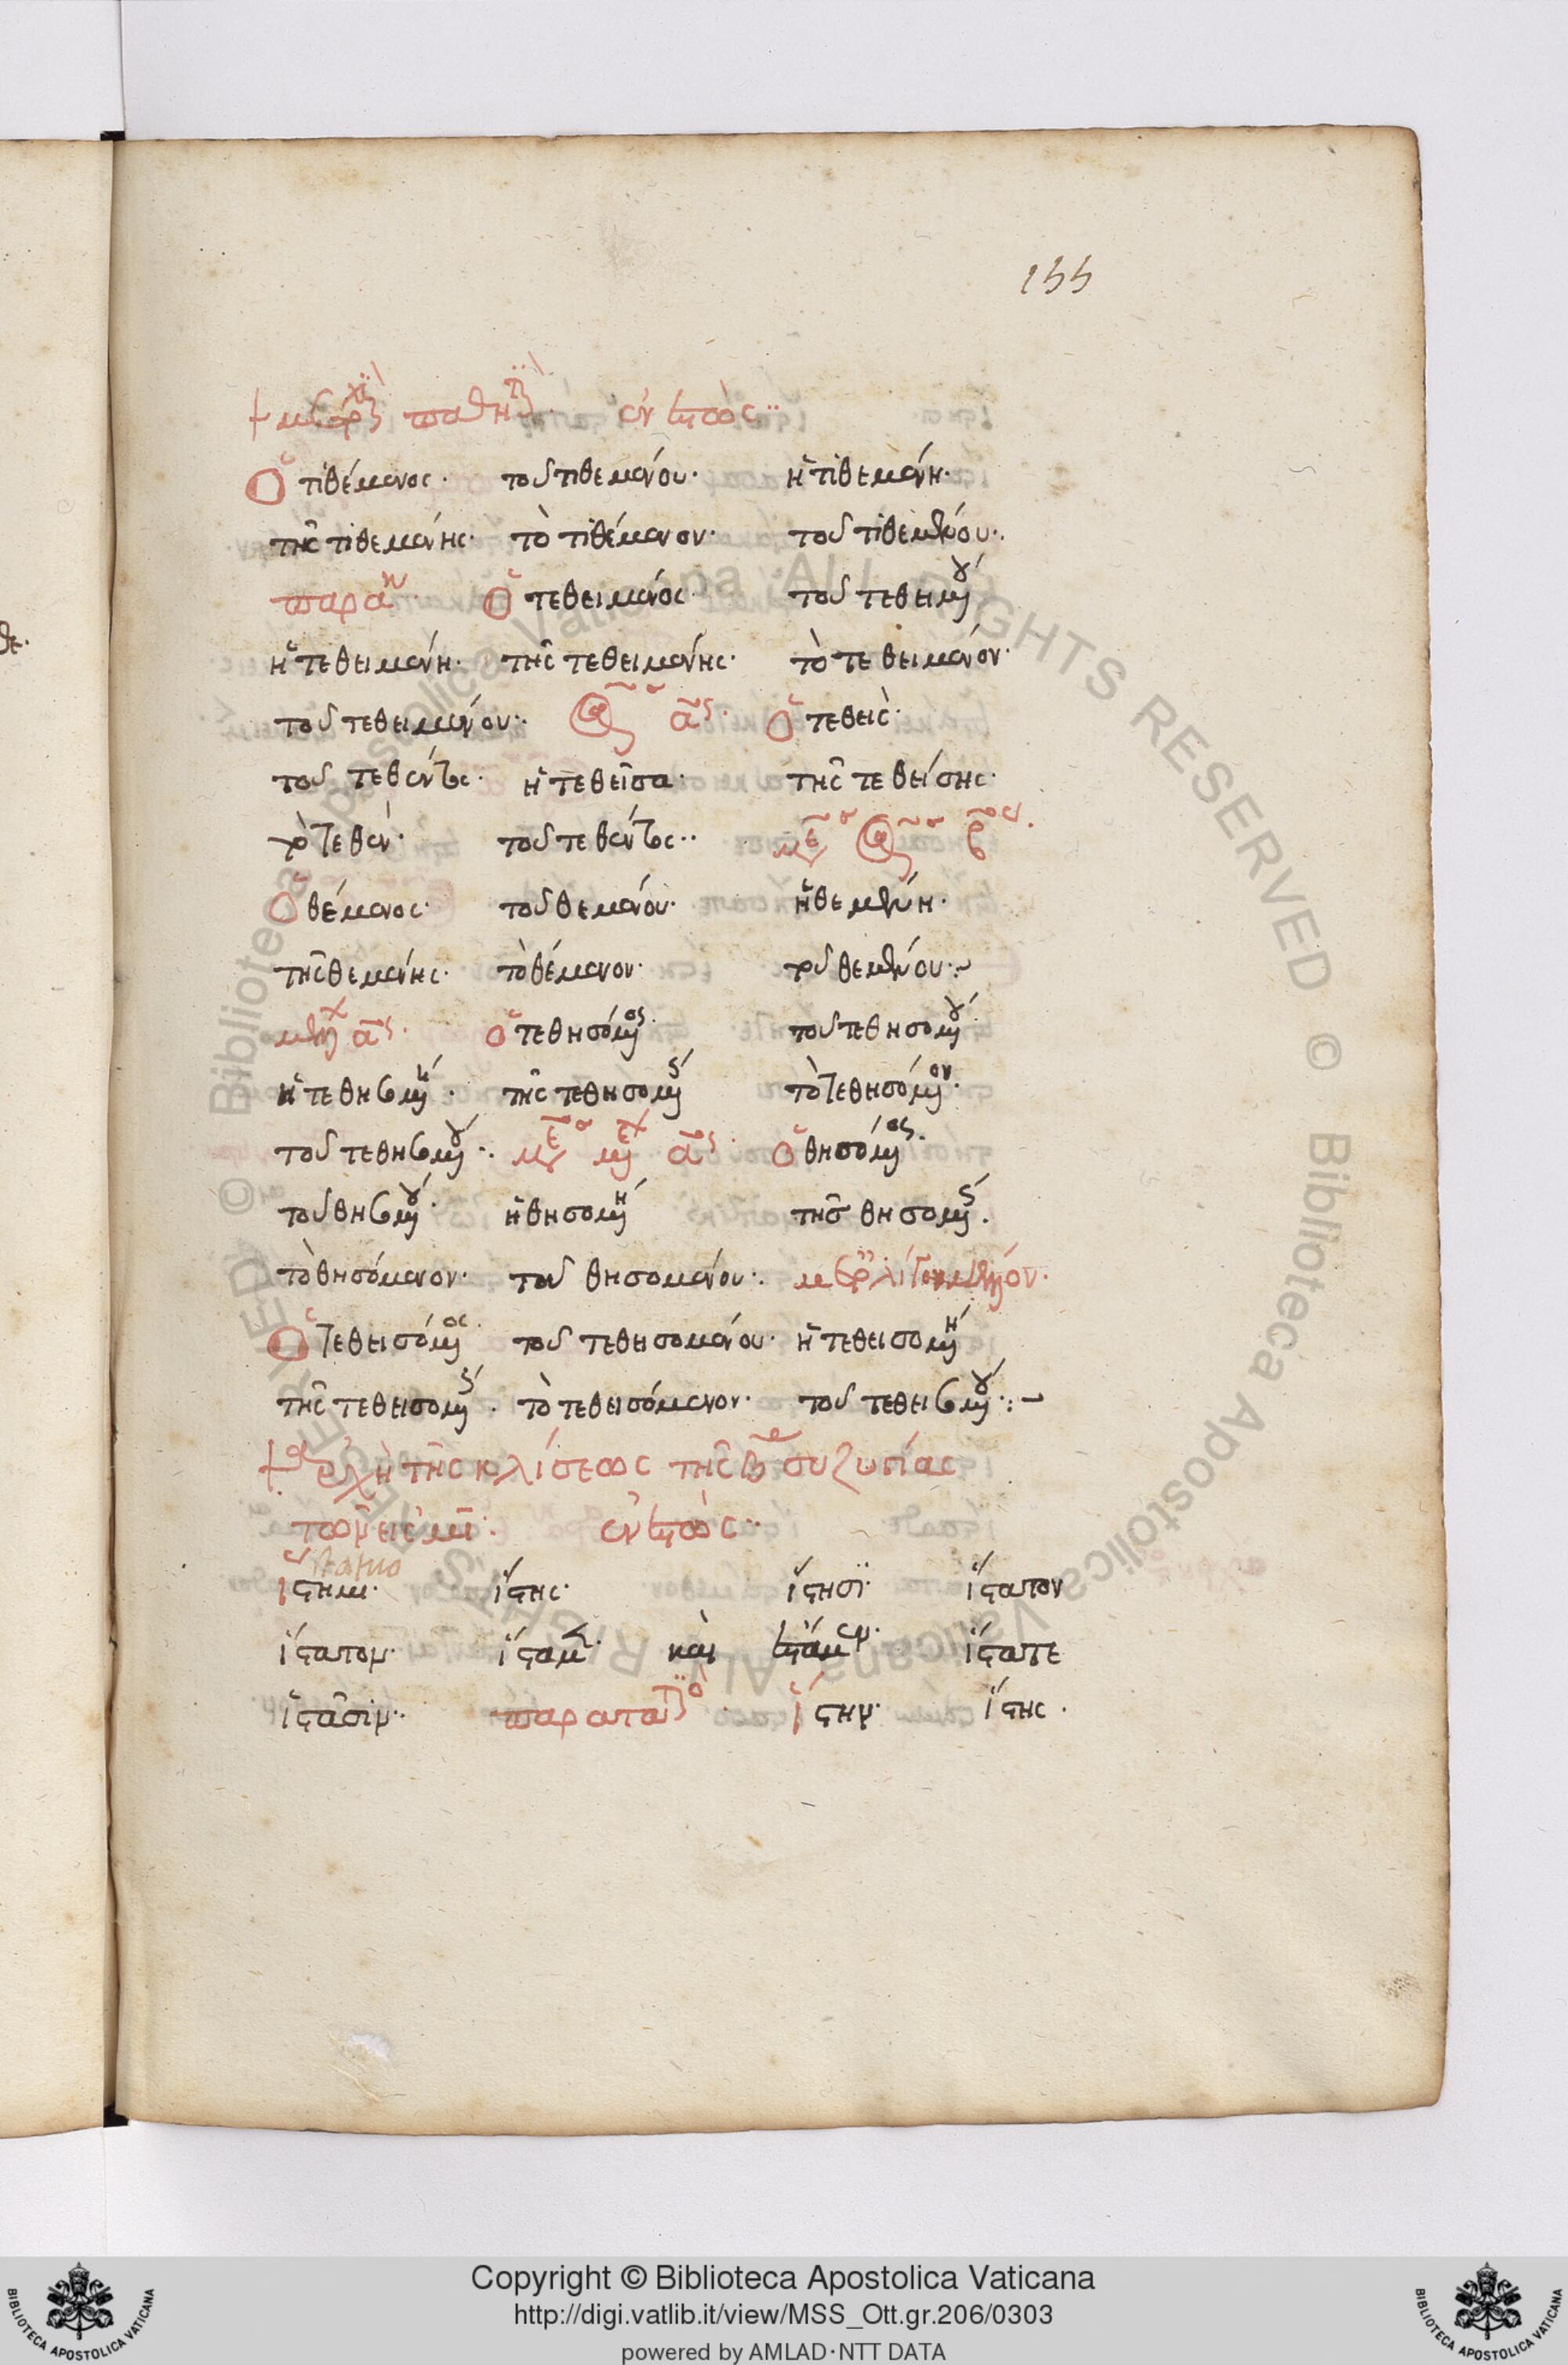 155
μετοχαὶ παθητικαὶ ἐνεστὼς
Ὁ τιθέμενος· τοῦ τιθεμένου· ἡ τιθεμένη·
τῆς τιθεμένης· τὸ τιθέμενον· τοῦ τιθεμένου·
παρακ ὁ τεθειμένος· τοῦ τεθειμ̅ου
ἡ τεθειμένη· τῆς τεθειμένης· τὸ τεθειμένον·
τοῦ τεθειμένου· ἀορ α ὁ τεθεὶς·
τοῦ τεθέντος· ἡ τεθεῖσα· τῆς τεθείσης·
τὸ τεθέν· τοῦ τεθέντος· μέσ ἀορ β
Ὁ θέμενος· τοῦ θεμένου· ἡ θεμένη·
τῆς θεμένης· τὸ θέμενον· τοῦ θεμένου·
μελλ α ὁ τεθησόμος· τοῦ τεθησομου
ἡ τεθησομη· τῆς τεθησομς τὸ τεθησόμον·
τοῦ τεθησομου· μέσ μελλ α ὁ θησόμος·
τοῦ θησομου· ἡ θησομη τῆς θησομς·
τὸ θησόμενον· τοῦ θησομένου·
Ὁ τεθεισόμος· τοῦ τεθησομένου· ἡ τεθεισομη
τῆς τεθεισομς· τὸ τεθεισόμενον· τοῦ τεθεισομου·
ἀρχὴ τῆς κλίσεως τῆς β συζυγίας
τῶν εἰς μι· ἐνεστὼς
statuo
ἵστημι· ἵστης· ἵστησι· ἵστατον
ἵστατον· ἵσταμεν· καὶ ἵσταμεν· ἵστατε
ἱστᾶσιν· παρατατικὸ ἵστην· ἵστης·
Copyright © Biblioteca Apostolica Vaticana
http://digi.vatlib.it/view/MSS_Ott.gr.206/0303
powered by AMLAD·NTT DATA
BIBLIOTECA APOSTOLICA VATICANA
BIBLIOTECA APOSTOLICA VATICANA